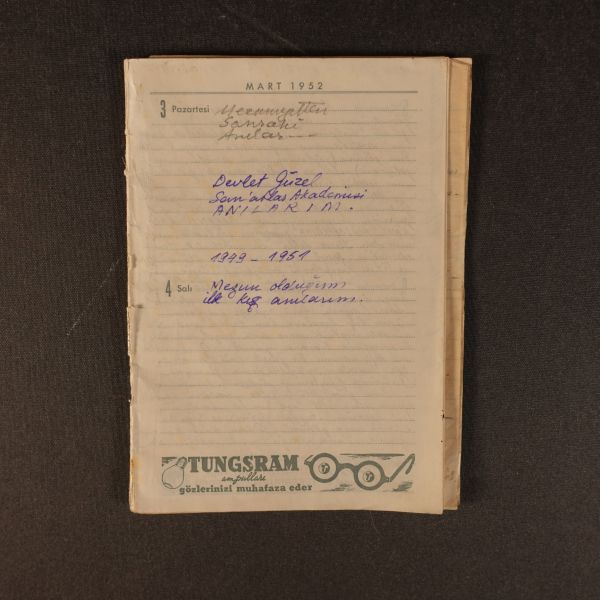 MART 1952
3 Pazartesi Mezuniyetten
Sonraki
Anılar---
Devlet Güzel
San'atlar Akademisi
ANILARIM.
1949-1951
4 Salı Mezun olduğum
ilk kış anılarım.
TUNGSRAM
ampulları
gözlerinizi muhafaza eder